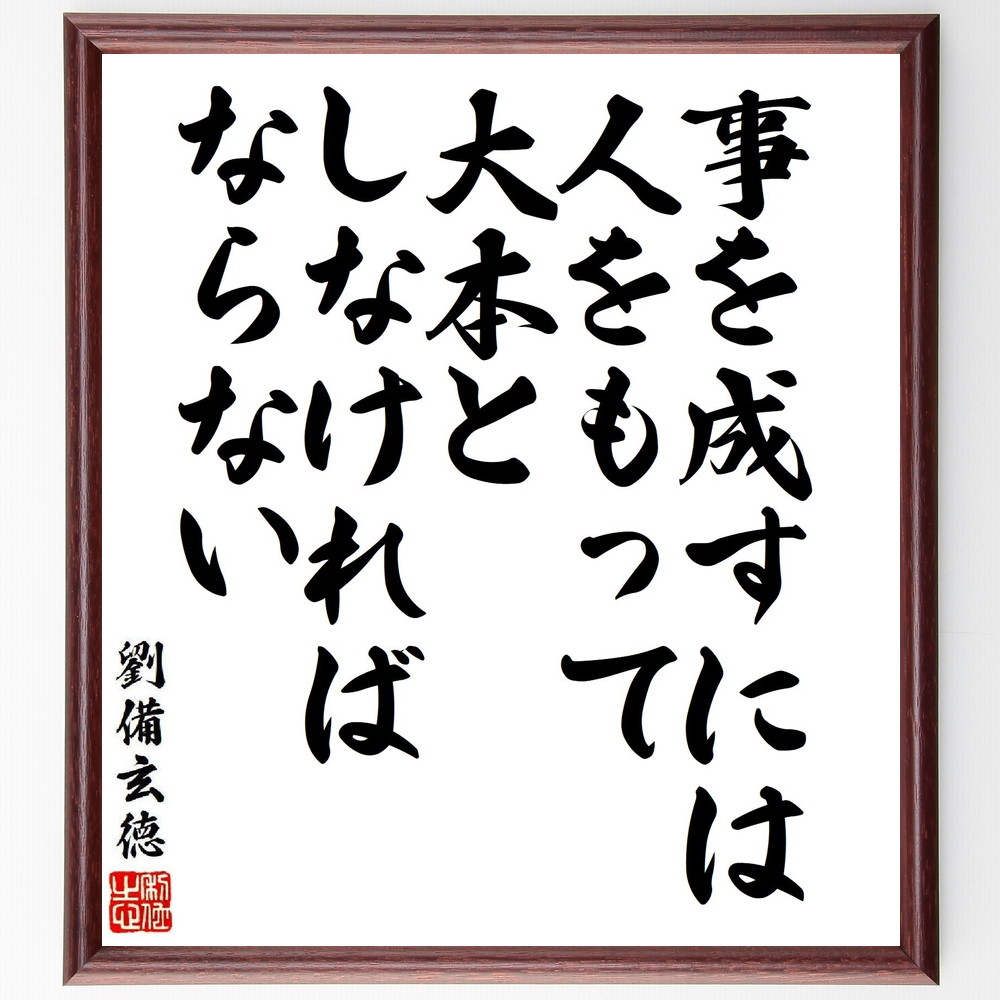 事を成すには
人をもって
大本と
しなければ
ならない
劉備玄徳